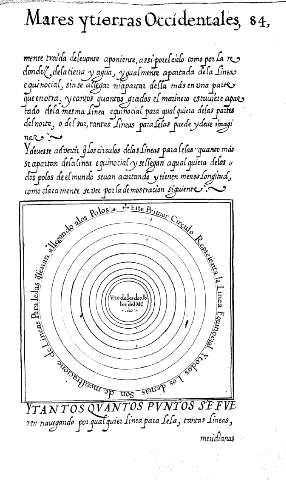 Mares y tierras Occidentales, 84,
mente traida deleuante aponiente, assi por el cielo como por la re
dondez dela tierra y agua, ygualmente apartada dela Linea
equinocial, sin se allegar ni apartar della más en una parte
que en otra, y tantos quantos grados el marinero estuuiere apar
tado dela mesma Linea equinocial para qual quiera delas partes
del norte, o del sur, tantas Lineas paralelas puede y deue imagi
nar
Y deuese aduertir q̃ los circulos delas Lineas paralelas quanto más
se apartan dela Linea equinocial y se llegan a qual quiera delos
dos polos del mundo se uan acortando y tienen menos longitud,
como claramente se vee por la demostracion siguiente
Este Primer Circulo Representa la Linea Equinocial Y todos Los demas Son de mostracion de Lineas Paralelas que se uan allegando alos Polos
Vno delos dos Po
los del MV
.ndo.
YTANTOS QVANTOS PVNTOS SE FVE
ren nauegando por qual quier Linea paralela, tantas Lineas,
meridianas